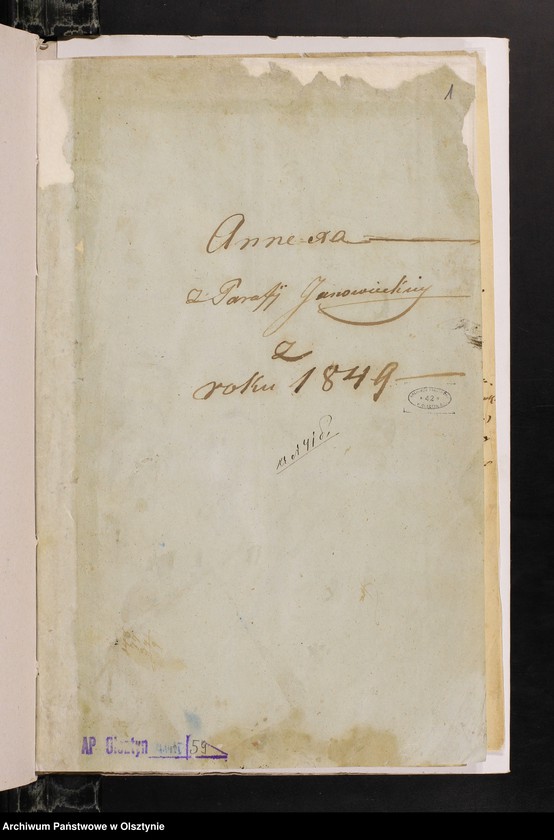 1
Annexa
z Parafij Janowieckiej
z
roku 1849
42
AP Olsztyn 59
Archiwum Państwowe w Olsztynie